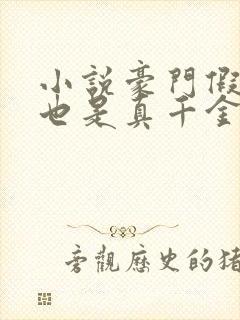 小説豪門假
也是真千金
旁觀歷史的猪